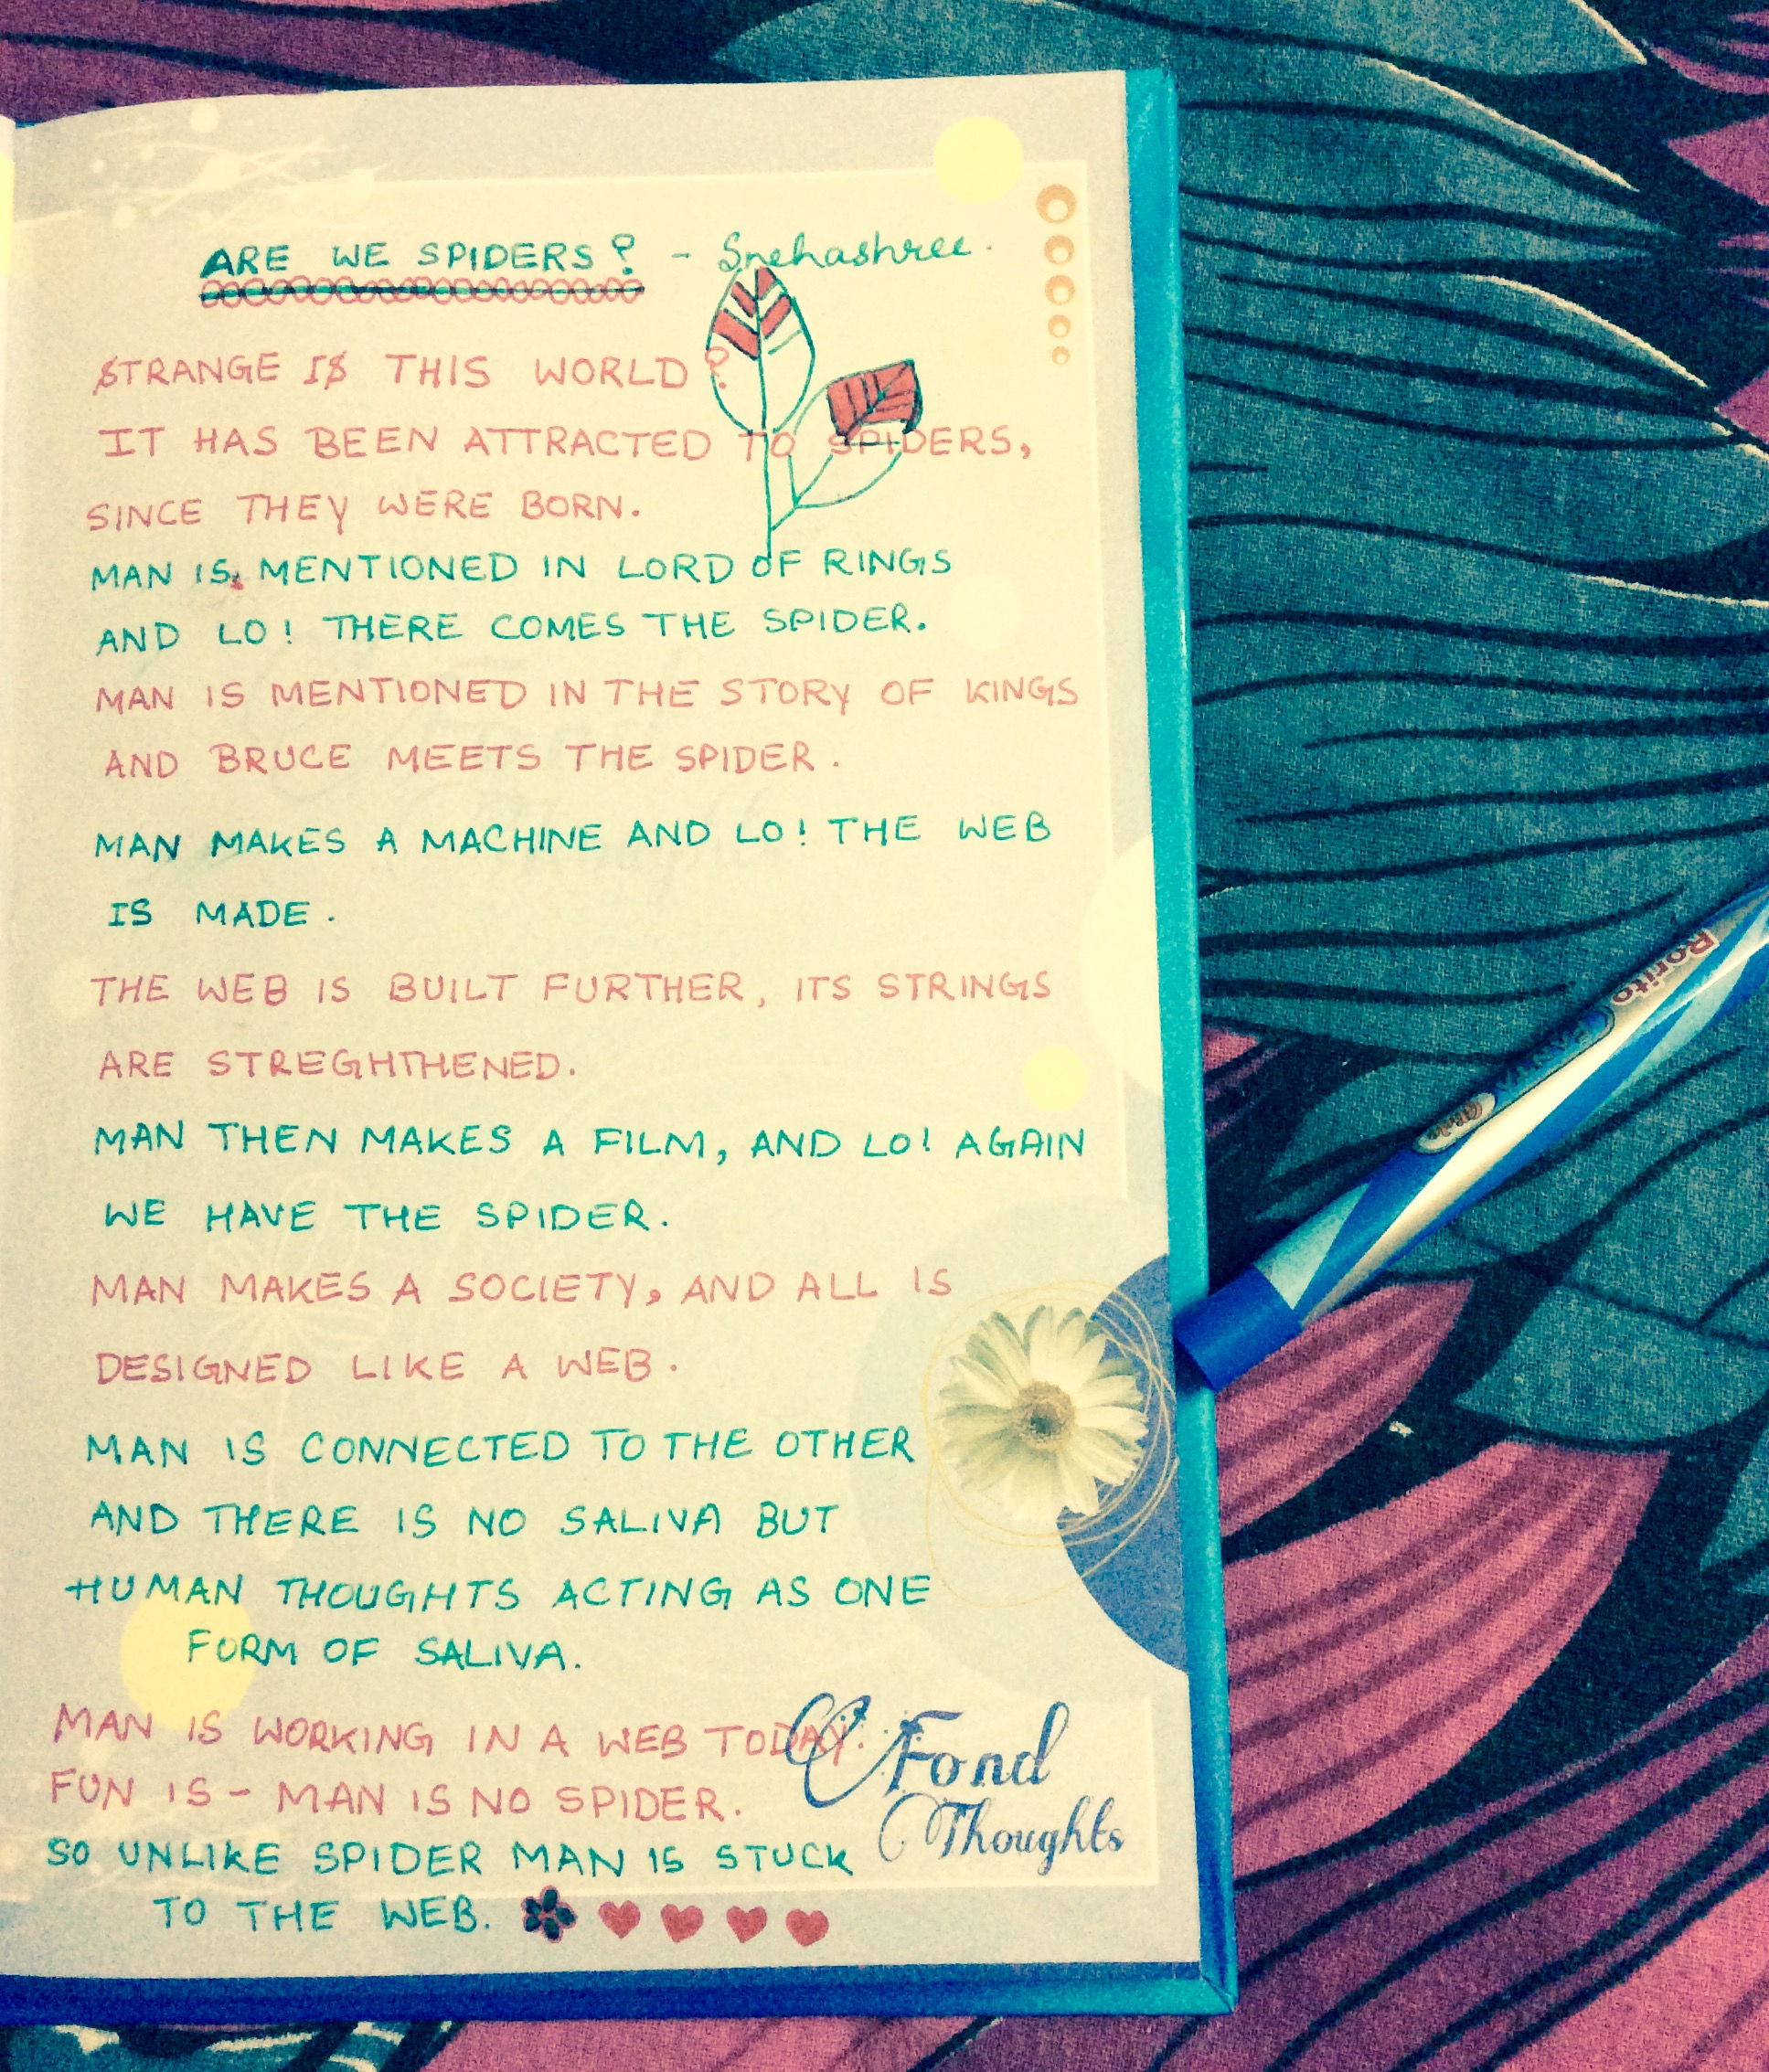 ARE WE SPIDERS? - Snehashree.
STRANGE IS THIS WORLD?
IT HAS BEEN ATTRACTED TO SPIDERS,
SINCE THEY WERE BORN.
MAN IS MENTIONED IN LORD OF RINGS
AND LO! THERE COMES THE SPIDER.
MAN IS MENTIONED IN THE STORY OF KINGS
AND BRUCE MEETS THE SPIDER.
MAN MAKES A MACHINE AND LO! THE WEB
IS MADE.
THE WEB IS BUILT FURTHER, ITS STRINGS
ARE STREGHTHENED.
MAN THEN MAKES A FILM, AND LO! AGAIN
WE HAVE THE SPIDER.
MAN MAKES A SOCIETY, AND ALL IS
DESIGNED LIKE A WEB.
MAN IS CONNECTED TO THE OTHER
AND THERE IS NO SALIVA BUT
HUMAN THOUGHTS ACTING AS ONE
FORM OF SALIVA.
MAN IS WORKING IN A WEB TODAY.
FUN IS - MAN IS NO SPIDER.
SO UNLIKE SPIDER MAN IS STUCK
TO THE WEB.
Fond
Thoughts
Rorito